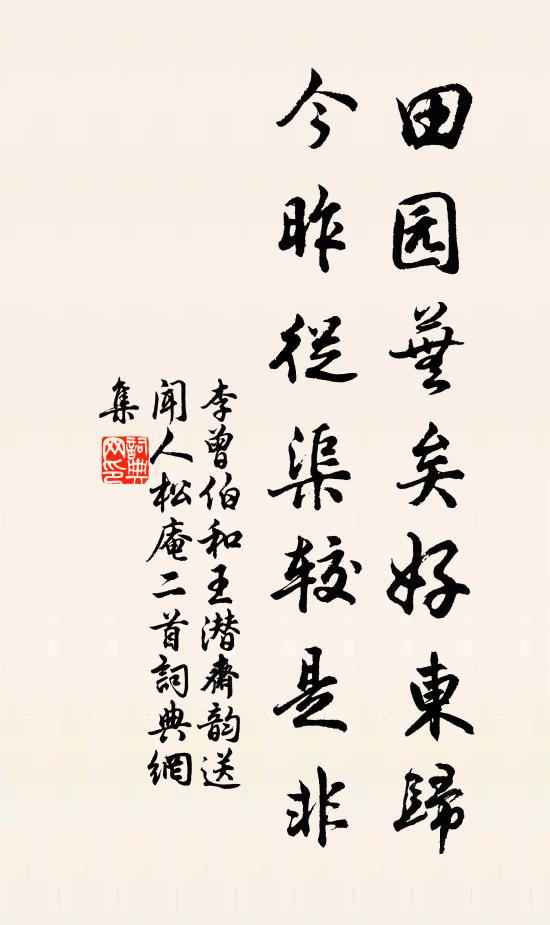 田园蕪矣好東歸
今昨從渠較是非
李曾伯和王潜齋韵送
闻人松庵二首詞典網
集
詞典網印